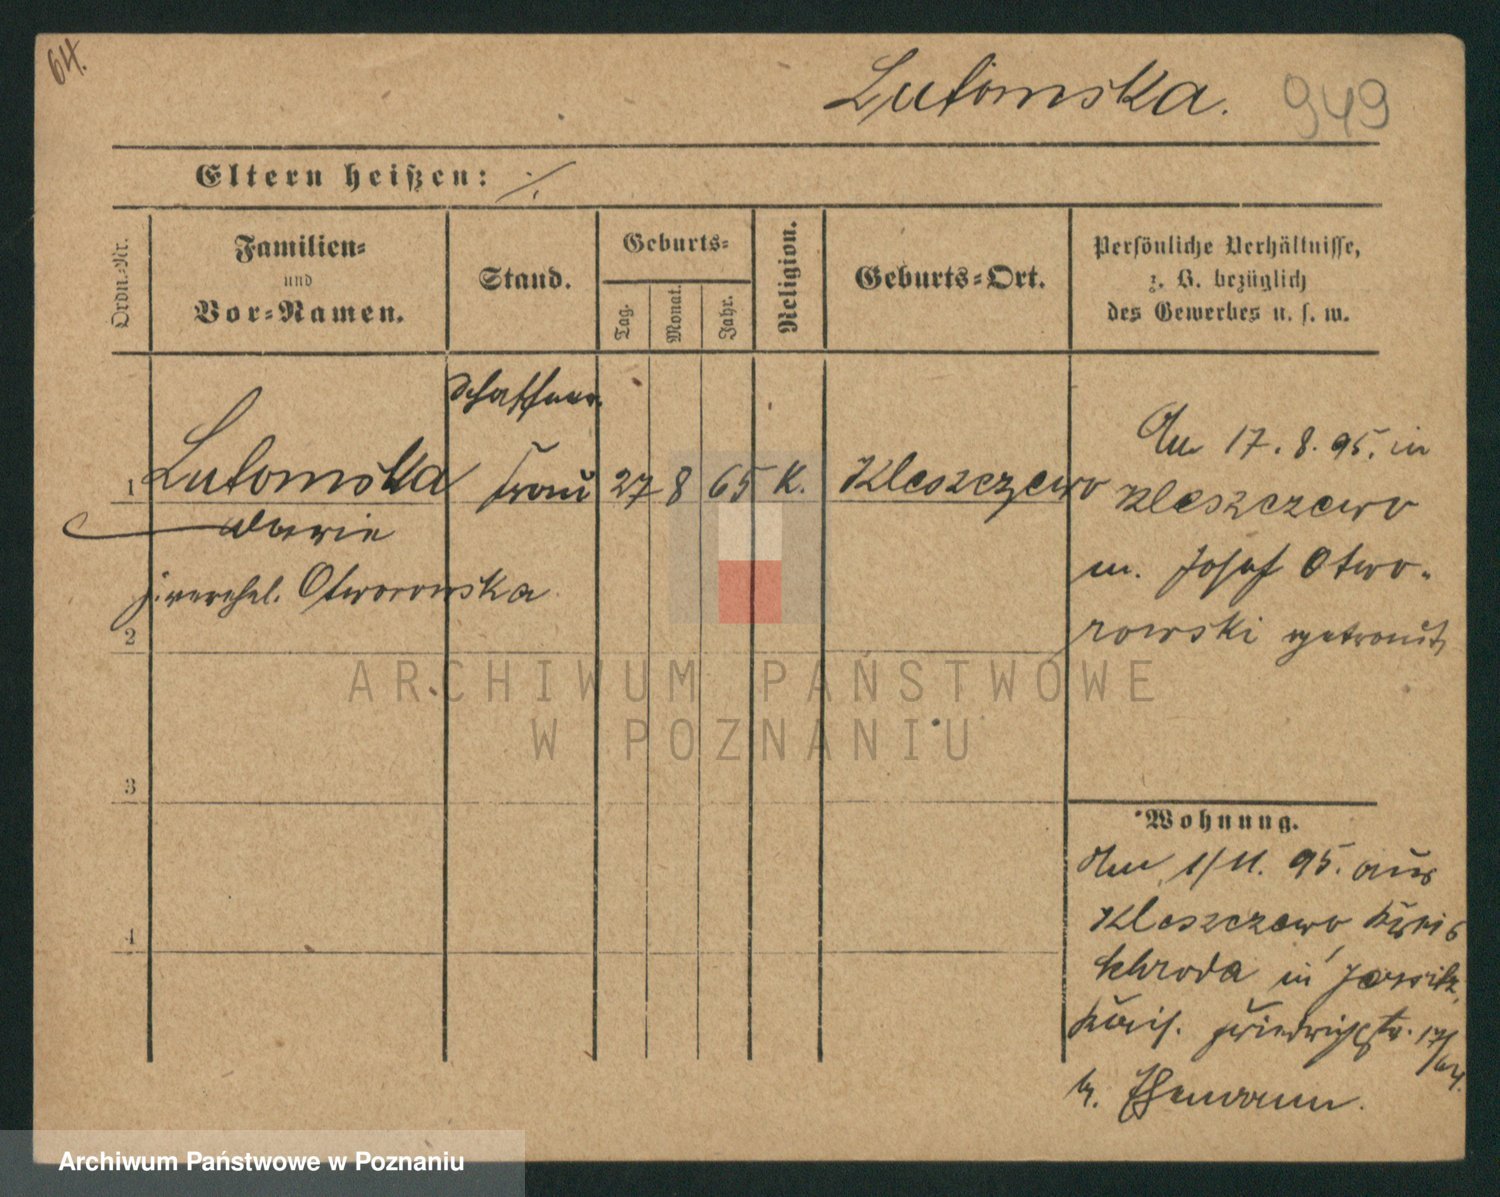 64.
Lutomska. 949
Eltern heißen: ·/.
Ordn.-Nr.
Familien-
und
Vor-Namen.
Stand.
Geburts-
Tag.
Monat.
Jahr.
Religion.
Geburts-Ort.
Persönliche Verhältnisse,
z. B. bezüglich
des Gewerbes u. s. w.
Schaffner
1 Lutomska frau 27 8 65 K. Kleszczewo
Marie
j. verehel. Otworowska
2
3
4
Am 17. 8. 95. in
Kleszczewo
m. Josef Otwo-
rowski getraut
Wohnung.
Am 1/11. 95. aus
Kleszczewo Kreis
Schroda in Jersitz,
Kais. Friedrichstr. 17/
64.
b. Ehemann.
ARCHIWUM PAŃSTWOWE
W POZNANIU
Archiwum Państwowe w Poznaniu